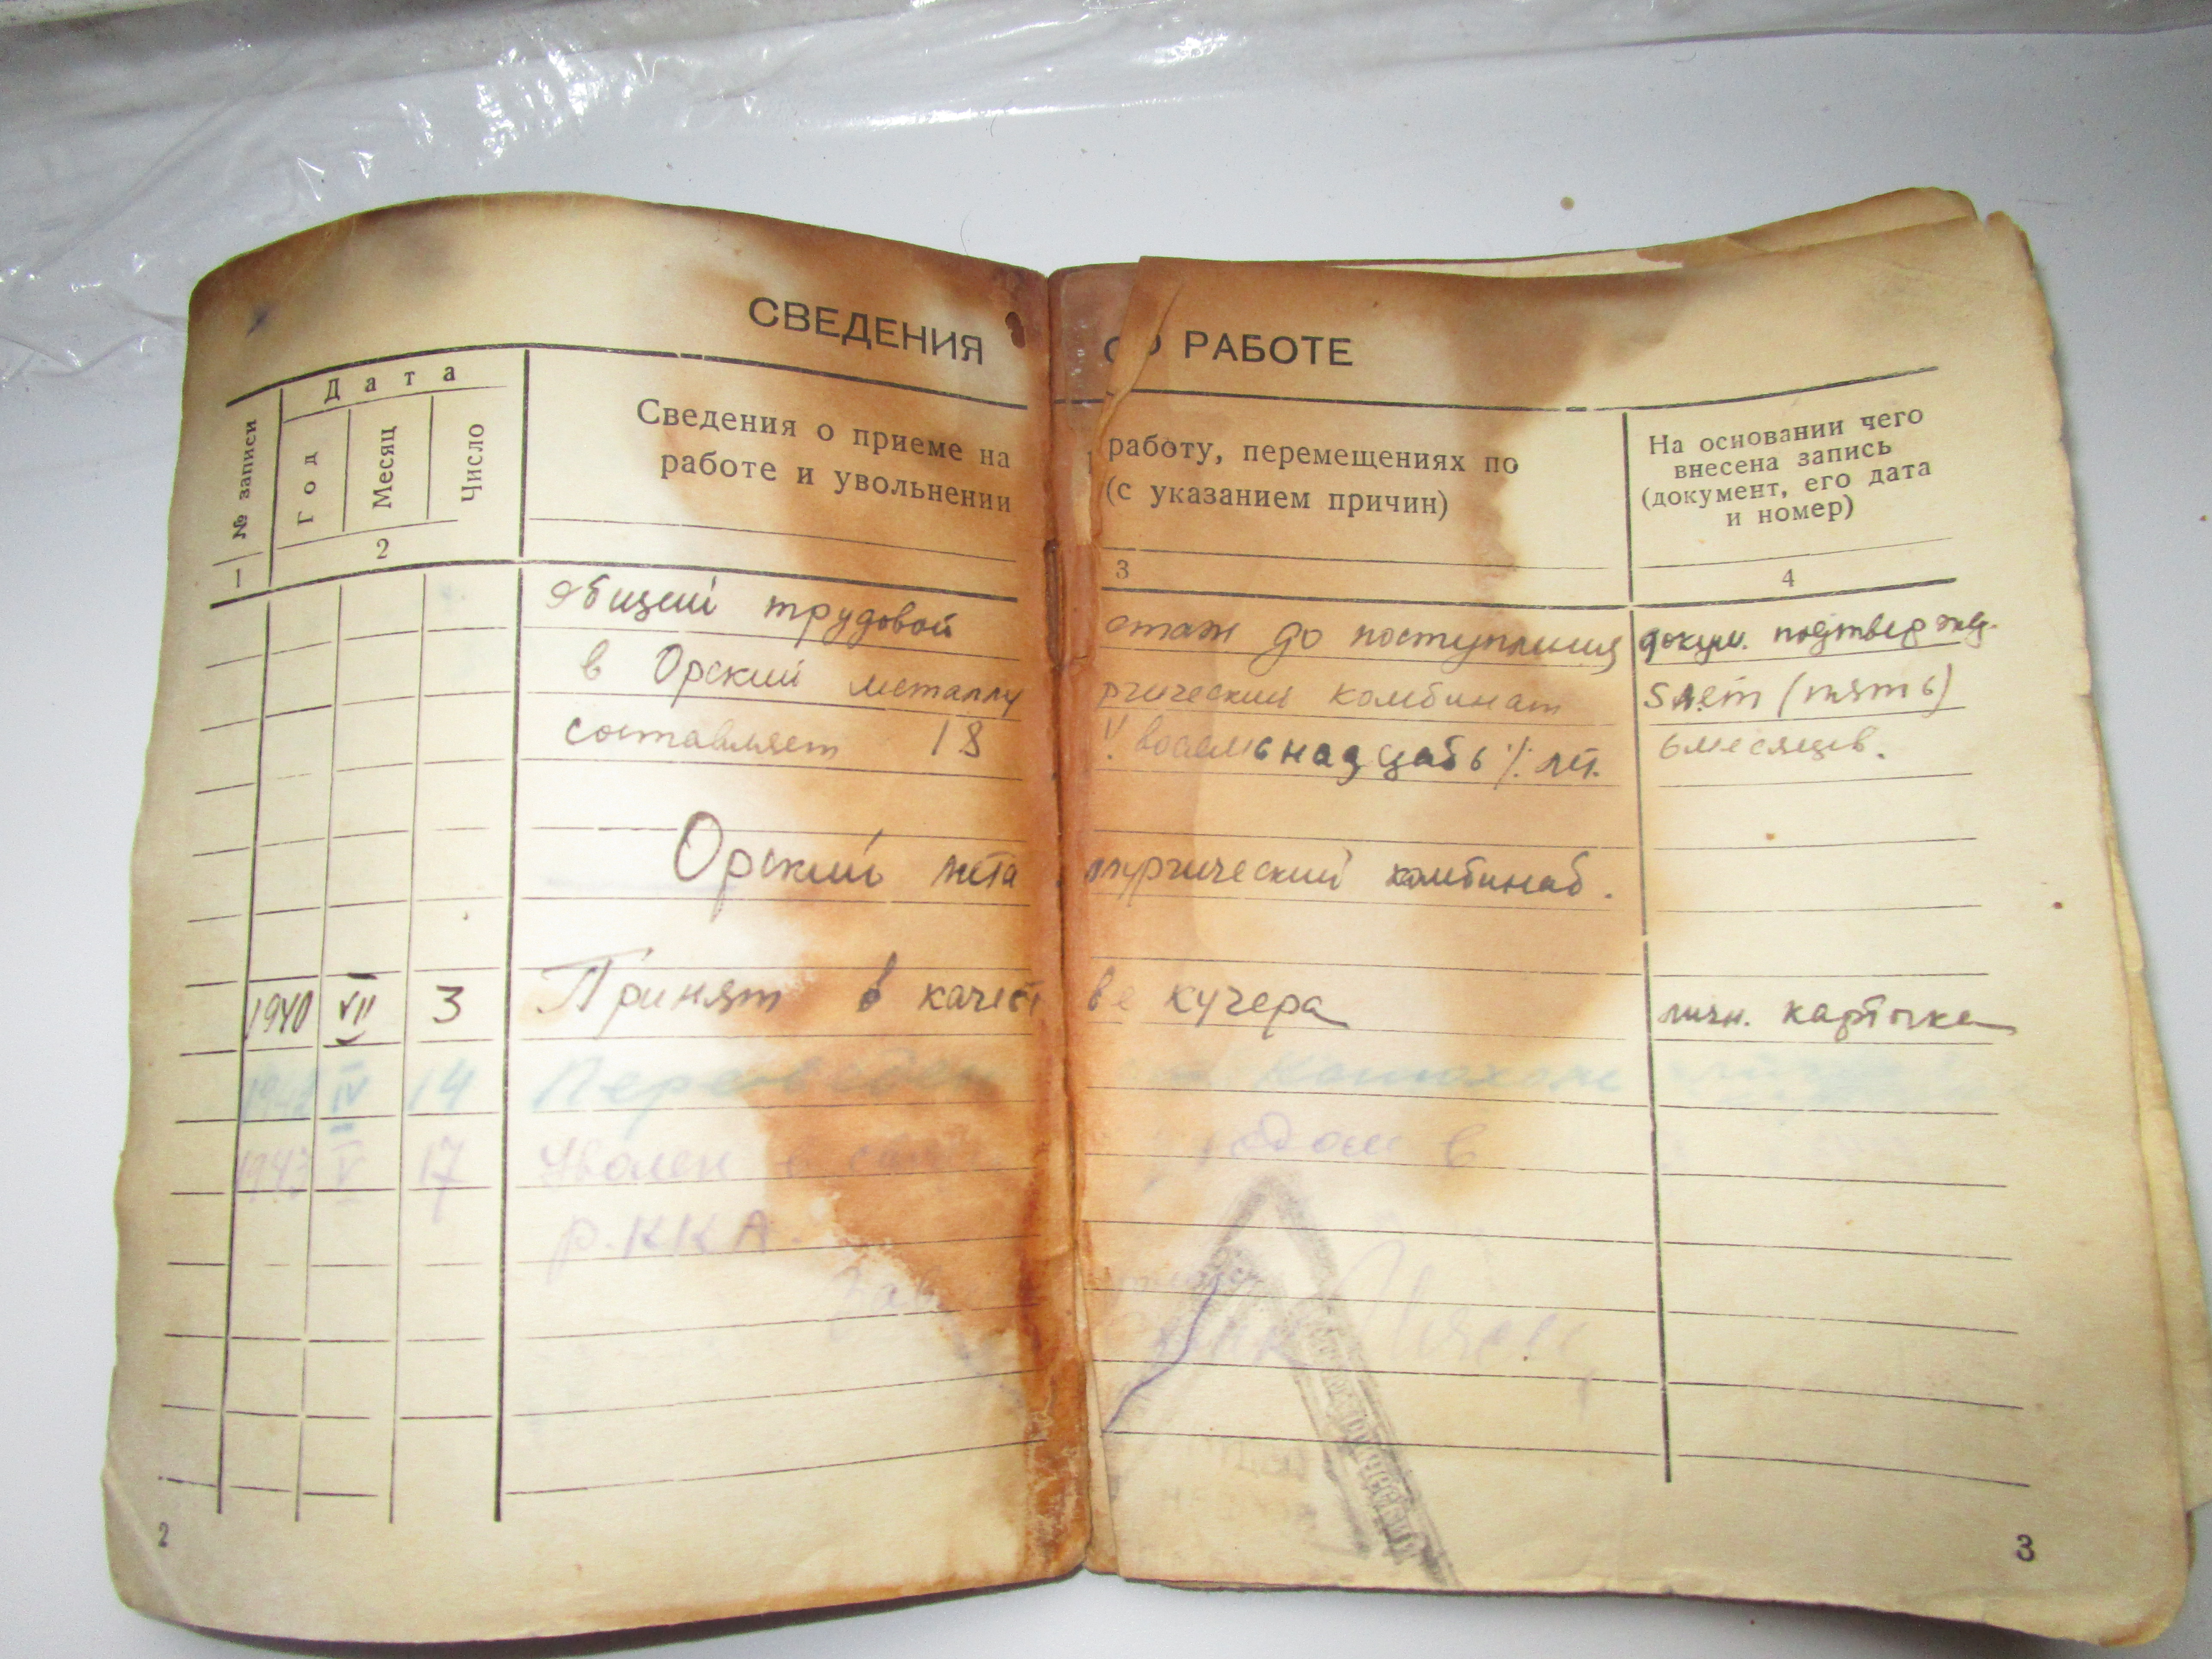 СВЕДЕНИЯ О РАБОТЕ
№ записи
Дата
Год
Месяц
Число
Сведения о приеме на работу, перемещениях по
работе и увольнении (с указанием причин)
На основании чего
внесена запись
(документ, его дата
и номер)
1 2 3 4
общий трудовой стаж до поступления докум. подтвержд.
в Орский металлургический комбинат 5 лет (пять)
составляет 18 /. восемьнадцать ./. лет. 6 месяцев.
Орский металлургический комбинат.
1940 VII 3 Принят в качестве кучера личн. карточка
1942 IV 14 Переведен Конюхом
1943 V 17 Уволен в в
р.ККА.
Зав
2
3